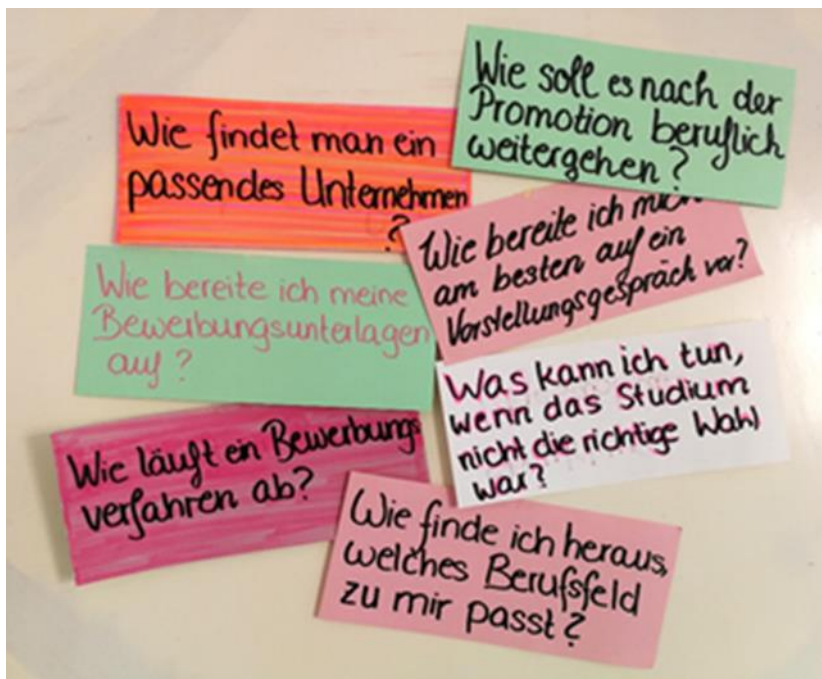 Wie soll es nach der
Promotion beruflich
weitergehen?
Wie findet man ein
passendes Unternehmen
?
Wie bereite ich mich
am besten auf ein
Vorstellungsgespräch vor?
Wie bereite ich meine
Bewerbungsunterlagen
auf?
Was kann ich tun,
wenn das Studium
nicht die richtige Wahl
war?
Wie läuft ein Bewerbungs
verfahren ab?
Wie finde ich heraus,
welches Berufsfeld
zu mir passt?